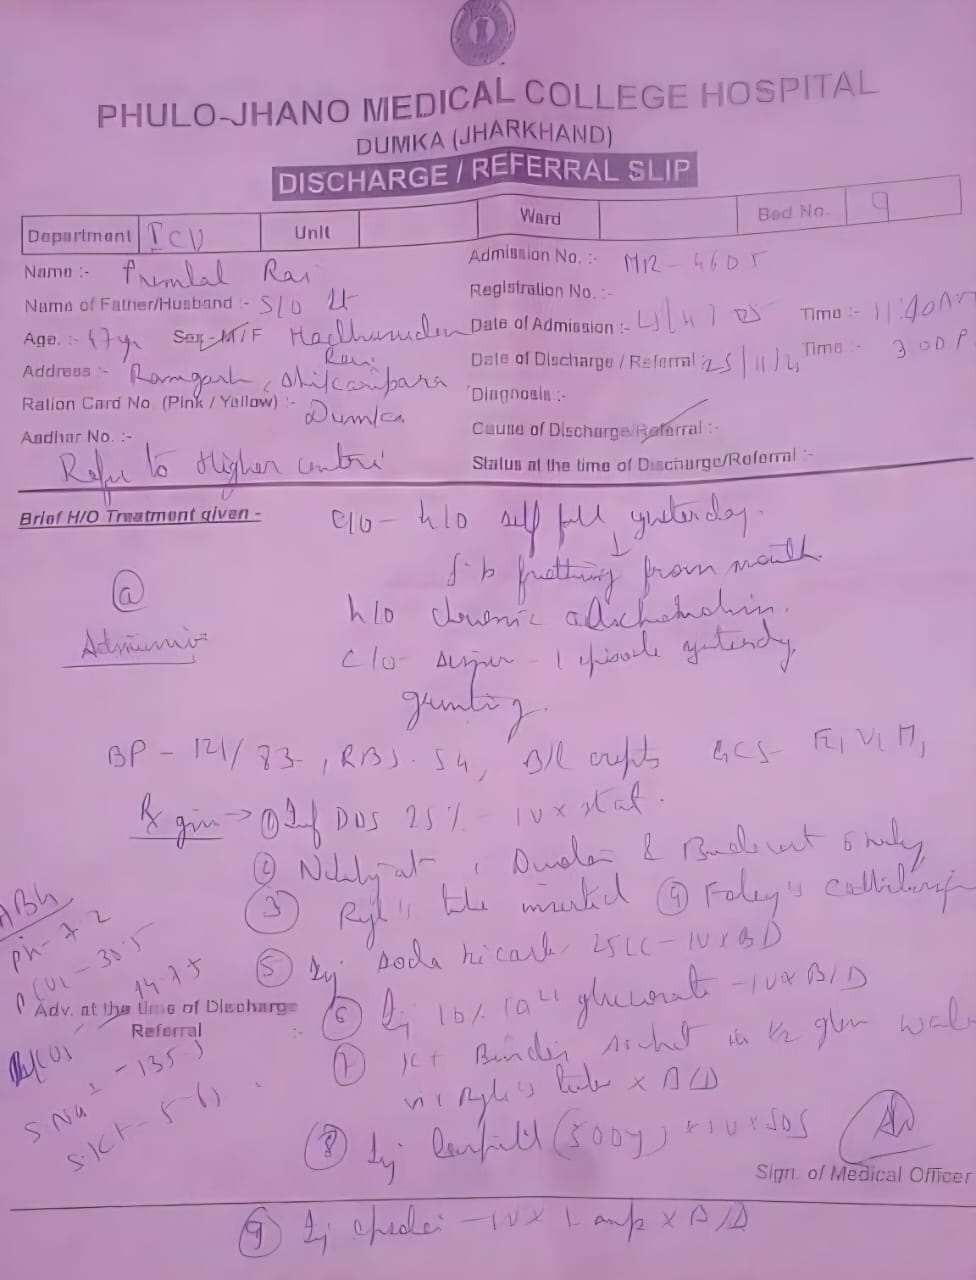 PHULO-JHANO MEDICAL COLLEGE HOSPITAL
DUMKA (JHARKHAND)
DISCHARGE / REFERRAL SLIP
Department ICU Unit Ward Bed No. 9
Name :- Premlal Rai
Admission No. :- MR - 4605
Name of Father/Husband :- S/O Lt
Registration No. :-
Age. :- 47 yr Sex M/F Madhusudan
Date of Admission :- Time :- 11:40 AM
Rai
Date of Discharge / Referral 25/11/2 Time :- 3:00 P
Address :- Ramgarh, Shikaripara
Diagnosis :-
Ration Card No. (Pink / Yellow) :- Dumka
Cause of Discharge/Referral :-
Aadhar No. :-
Status at the time of Discharge/Referral :-
Refer to Higher centre
Brief H/O Treatment given -
C/O - h/o self fall yesterday.
f.b frothing from mouth.
@
h/o chronic
C/O - - 1 episode yesterday
grunting.
BP - 121/83, RBS - 54, B/L crepts GCS - E1 V1 M1
Rx given → ① Inf DNS 25% - IV x stat.
② & 6 hrly
③ Ryle's tube inserted ④ Foley's
⑤ Inj soda bicarb 25cc - IV x BD
ABG
pH - 7.2
pCO2 - 30.5
14.75
⑥ Inj 10% Ca2+ gluconate - IV x B/D
Adv. at the time of Discharge
Referral :-
⑦ K+ Binder sachet in 1/2 glass water
via Ryle's tube x B/D
S.Na+ - 135.5
S.K+ - 5.61
⑧ Inj x IV x SOS
Sign. of Medical Officer
⑨ Inj - IV x 1 amp x B/D